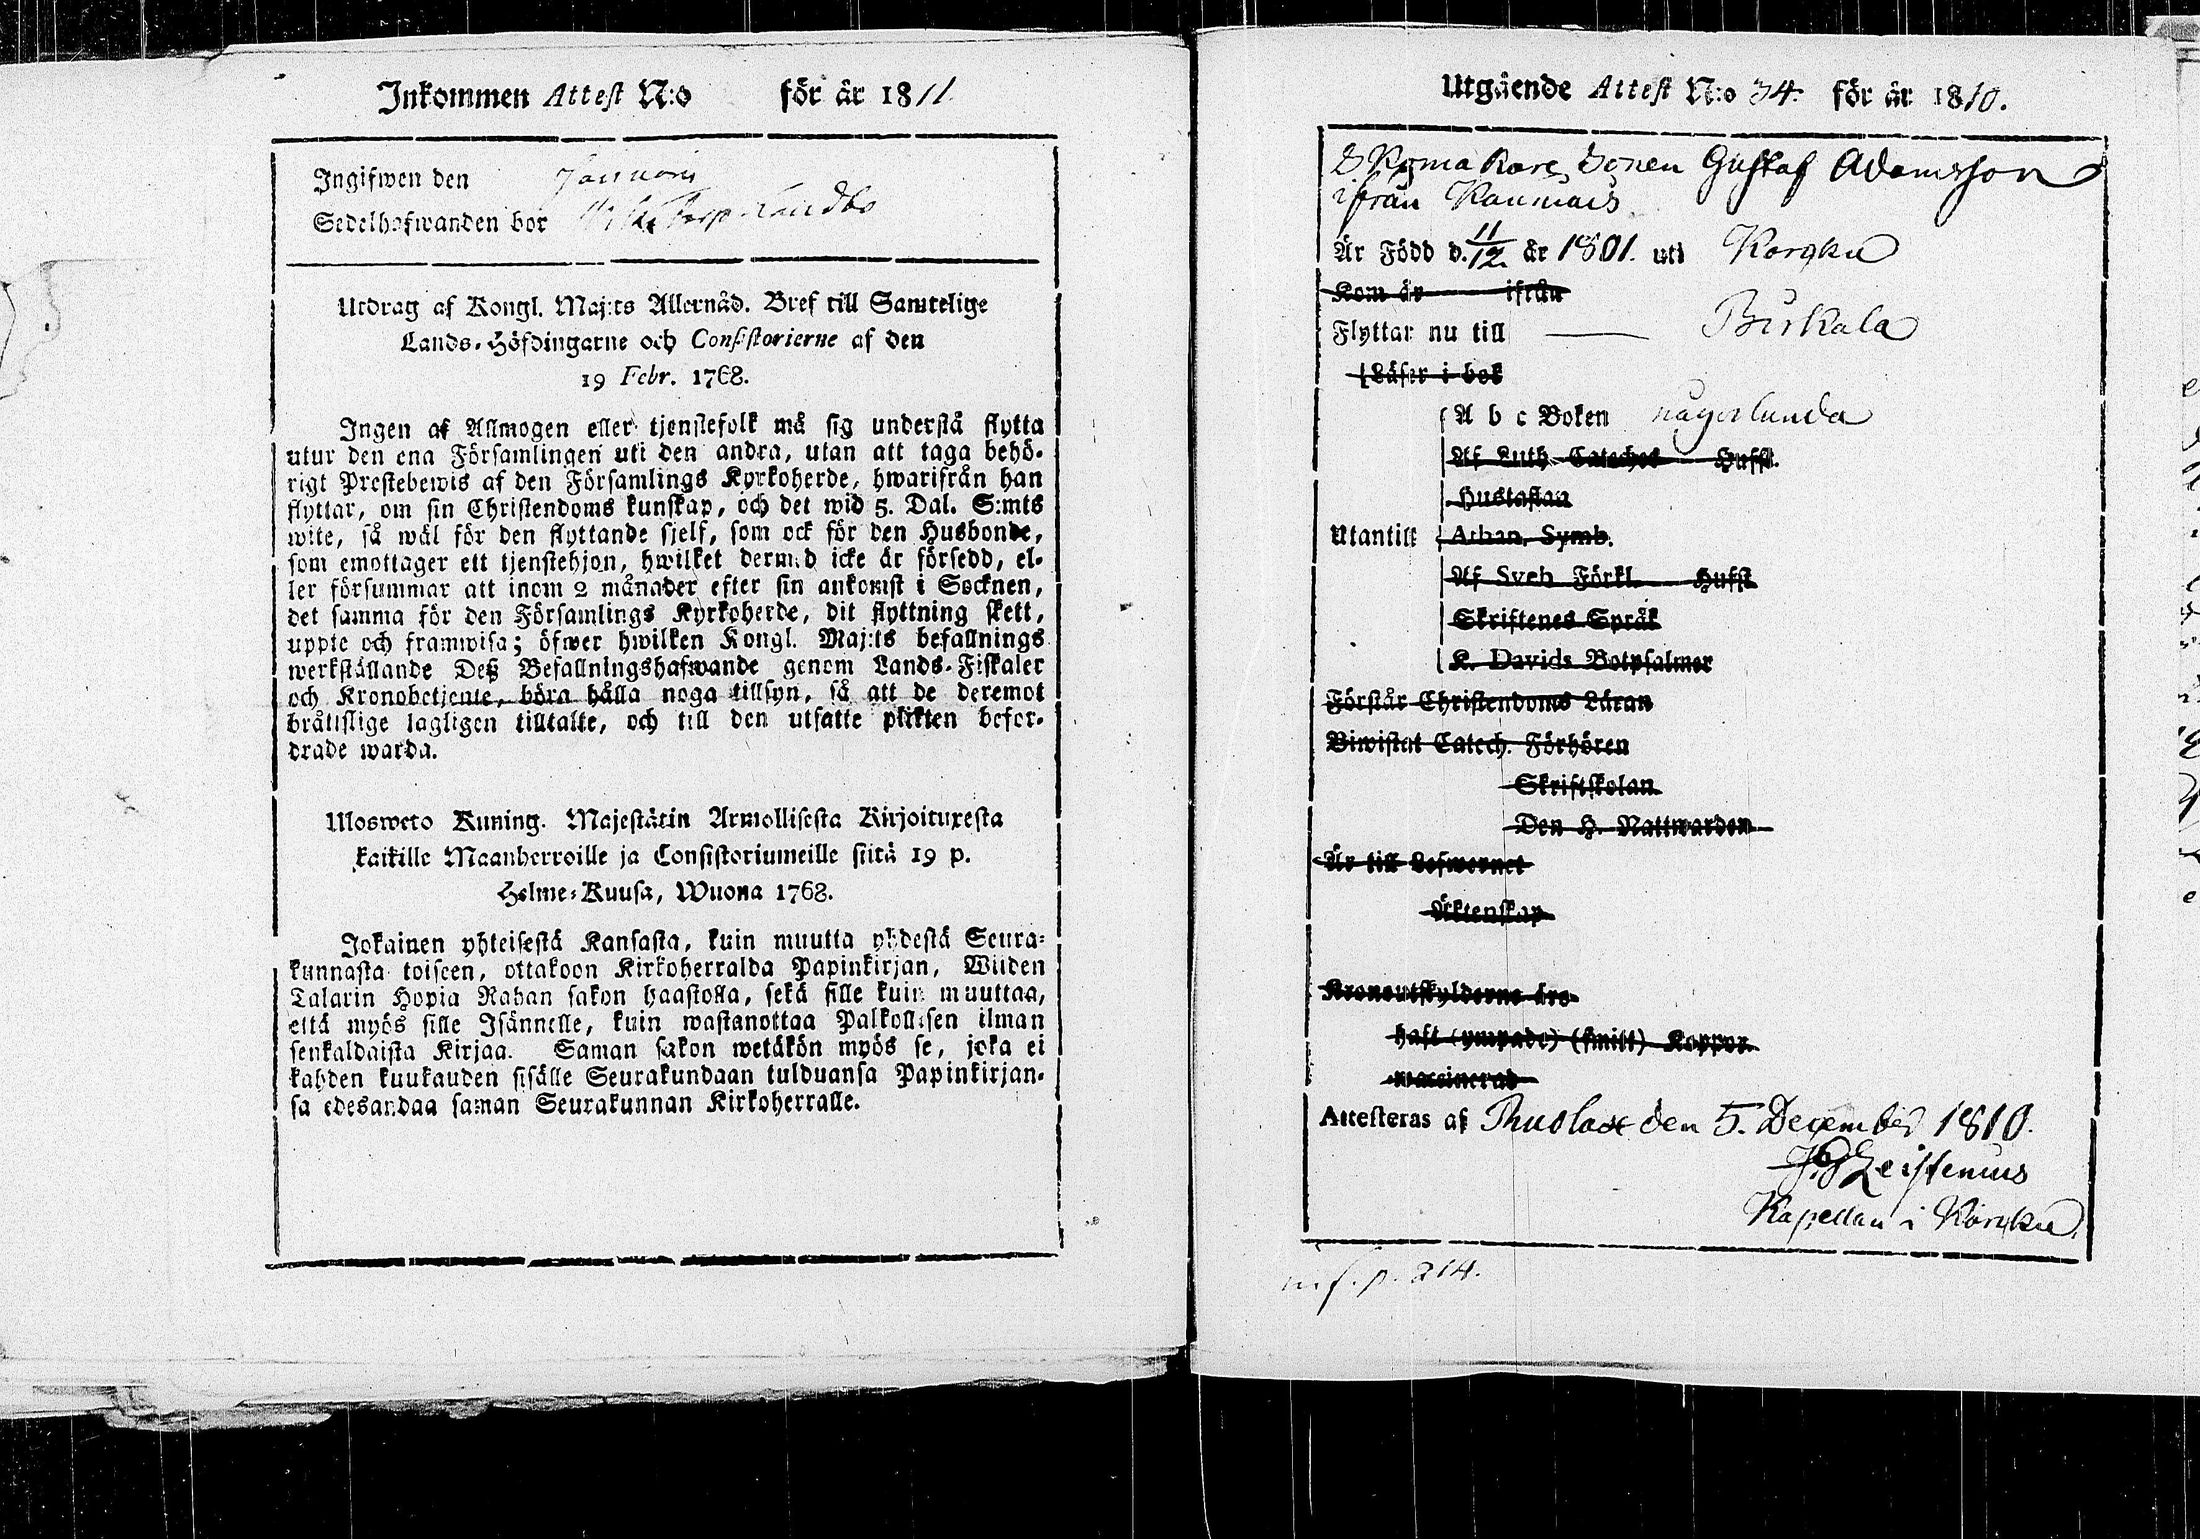 Inkommen Attest N:o för år 1811.
Ingifwen den Januarii
Sedelhafwanden bor
Utdrag af Kongl. Maj:ts Allernåd. Bref till Samtelige
Lands-Höfdingarne och Consistorierne af den
19 Febr. 1768.
Ingen af Allmogen eller tjenstefolk må sig understå flytta
utur den ena Församlingen uti den andra, utan att taga behö-
rigt Prestebewis af den Församlings Kyrkoherde, hwarifrån han
flyttar, om sin Christendoms kunskap, och det wid 5. Dal. S:mts
wite, så wäl för den flyttande sjelf, som ock för den Husbonde,
som emottager ett tjenstehjon, hwilket dermed icke är försedd, el-
ler försummar att inom 2 månader efter sin ankomst i Socknen,
det samma för den Församlings Kyrkoherde, dit flyttning skett,
uppte och framwisa; öfwer hwilken Kongl. Maj:ts befallnings
werkställande Deß Befallningshafwande genom Lands-Fiskaler
och Kronobetjente, böra hålla noga tillsyn, så att de deremot
bråttslige lagligen tilltalte, och till den utsatte plikten befor-
drade warda.
Ulosweto Kuning. Majestätin Armollisesta Kirjoituxesta
kaikille Maanherroille ja Consistoriumeille siitä 19 p.
Helme-Kuusa, Wuona 1768.
Jokainen yhteisestä Kansasta, kuin muutta yhdestä Seura-
kunnasta toiseen, ottakoon Kirkoherralda Papinkirjan, Wiiden
Talarin Hopia Rahan sakon haastolla, sekä sille kuin muuttaa,
että myös sille Isännelle, kuin wastanottaa Palkollisen ilman
senkaldaista Kirjaa. Saman sakon wetäkön myös se, joka ei
kahden kuukauden sisälle Seurakundaan tulduansa Papinkirjan-
sa edesandaa saman Seurakunnan Kirkoherralle.
Utgående Attest N:o 34. för år 1810.
Skomakare Sonen Gustaf Adamsson
ifrån Kaumais
Är Född d. 11/12 år 1801. uti Korpku
Kom år ifrån
Flyttar nu till Birkala
Läser i bok
A b c Boken någorlunda
Af Luth. Cateches Hufst.
Hustaflan
Utantill Athan. Symb.
Af Sveb Förkl. Hufst
Skriftenes Språk
K. Davids Botpsalmer
Förstår Christendoms Läran
Biwistat Catech. Förhören
Skriftskolan
Den H. Nattwarden
Är till Lefwernet
Äktenskap
Kronoutskylderne äro
haft (ympade) (smitt) Koppor.
waccinerad
Attesteras af den 5. December 1810.
Zeistenius
Kapellan i Korpku
p. 214.